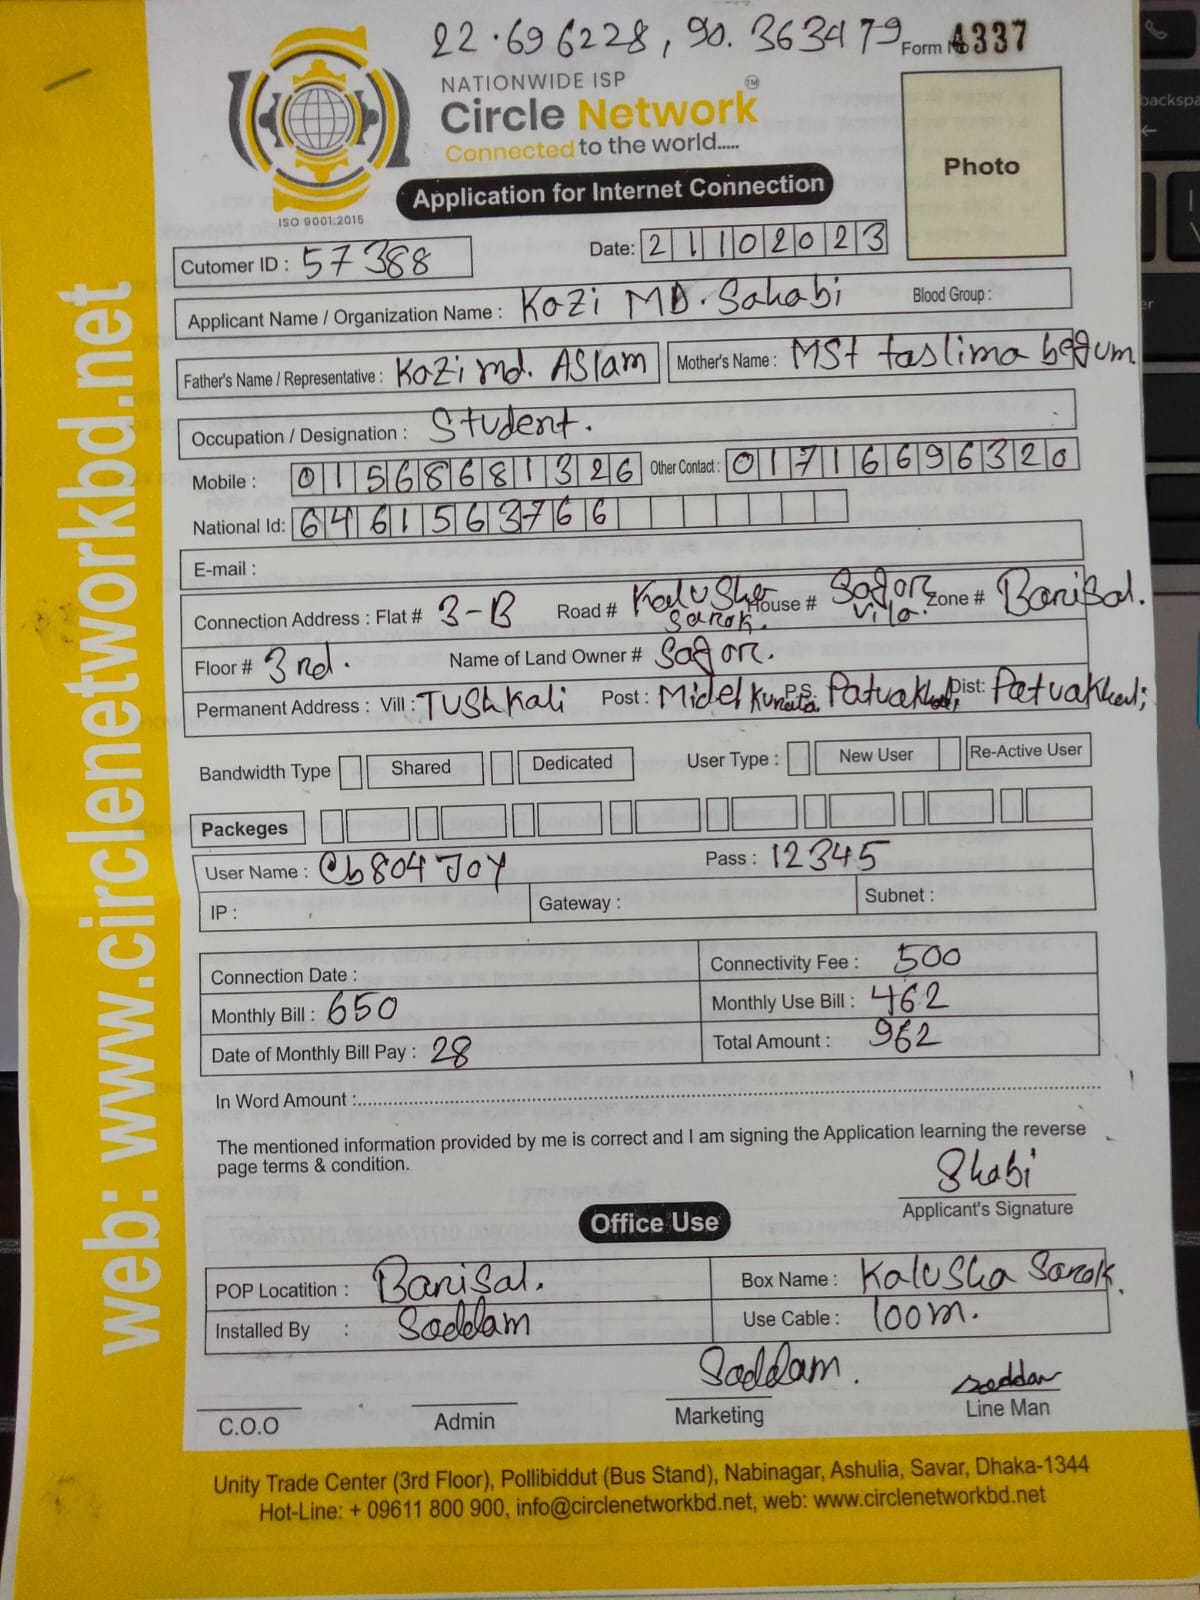 22.696228, 90.363479
Form No 4337
NATIONWIDE ISP
Circle Network TM
Connected to the world.....
ISO 9001:2015
Application for Internet Connection
Photo
Cutomer ID : 57388
Date: 21102023
Applicant Name / Organization Name : Kazi MD. Sahabi Blood Group :
Father's Name / Representative : Kazi md. Aslam Mother's Name : MSt taslima begum
Occupation / Designation : Student.
Mobile : 01568681326 Other Contact : 01716696320
National Id: 6461563766
E-mail :
Connection Address : Flat # 3-B Road # Kalusha Sarok. House # Sagor Vila. Zone # Barisal.
Floor # 3rd. Name of Land Owner # Sagor.
Permanent Address : Vill : Tushkali Post : Midel P.S. Patuakhali, Dist: Patuakhali;
Bandwidth Type Shared Dedicated User Type : New User Re-Active User
Packeges
User Name : Cb804JOY Pass : 12345
IP : Gateway : Subnet :
Connection Date : Connectivity Fee : 500
Monthly Bill : 650 Monthly Use Bill : 462
Date of Monthly Bill Pay : 28 Total Amount : 962
In Word Amount :
The mentioned information provided by me is correct and I am signing the Application learning the reverse
page terms & condition.
Shabi
Applicant's Signature
Office Use
POP Locatition : Barisal. Box Name : Kalusha Sarok.
Installed By : Saddam Use Cable : 100m.
Saddam. Saddam
C.O.O Admin Marketing Line Man
Unity Trade Center (3rd Floor), Pollibiddut (Bus Stand), Nabinagar, Ashulia, Savar, Dhaka-1344
Hot-Line: + 09611 800 900, info@circlenetworkbd.net, web: www.circlenetworkbd.net
web: www.circlenetworkbd.net
backspa